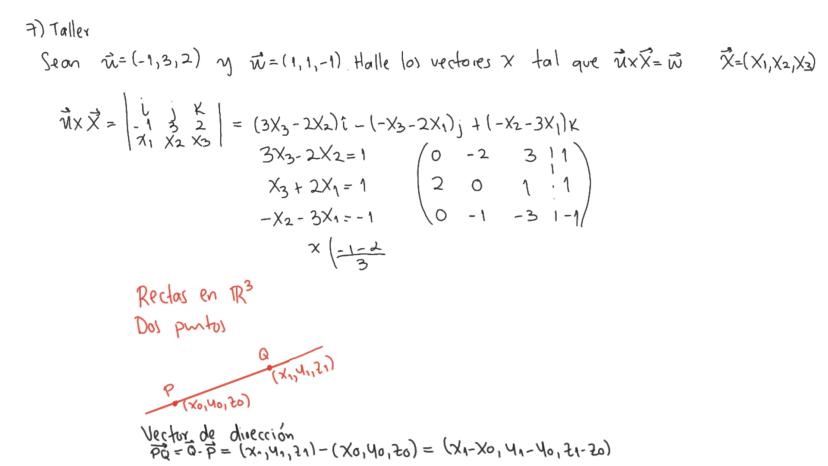 7) Taller
Sean u⃗=(-1,3,2) y w⃗=(1,1,-1). Halle los vectores X tal que u⃗xX⃗=w⃗ X⃗=(X1,X2,X3)
u⃗x X⃗ = | i j K | = (3X3-2X2)i -(-X3-2X1)j +(-X2-3X1)K
| -1 3 2 |
| X1 X2 X3 |
3X3-2X2=1 ( 0 -2 3 | 1 )
X3 + 2X1 = 1 ( 2 0 1 | 1 )
-X2-3X1=-1 ( 0 -1 -3 | -1 )
x (-1-2/3
Rectas en ℝ³
Dos puntos
Q
(X1,Y1,Z1)
P
(X0,Y0,Z0)
Vector de dirección
PQ⃗ = Q⃗-P⃗ = (X1,Y1,Z1)-(X0,Y0,Z0) = (X1-X0, Y1-Y0, Z1-Z0)